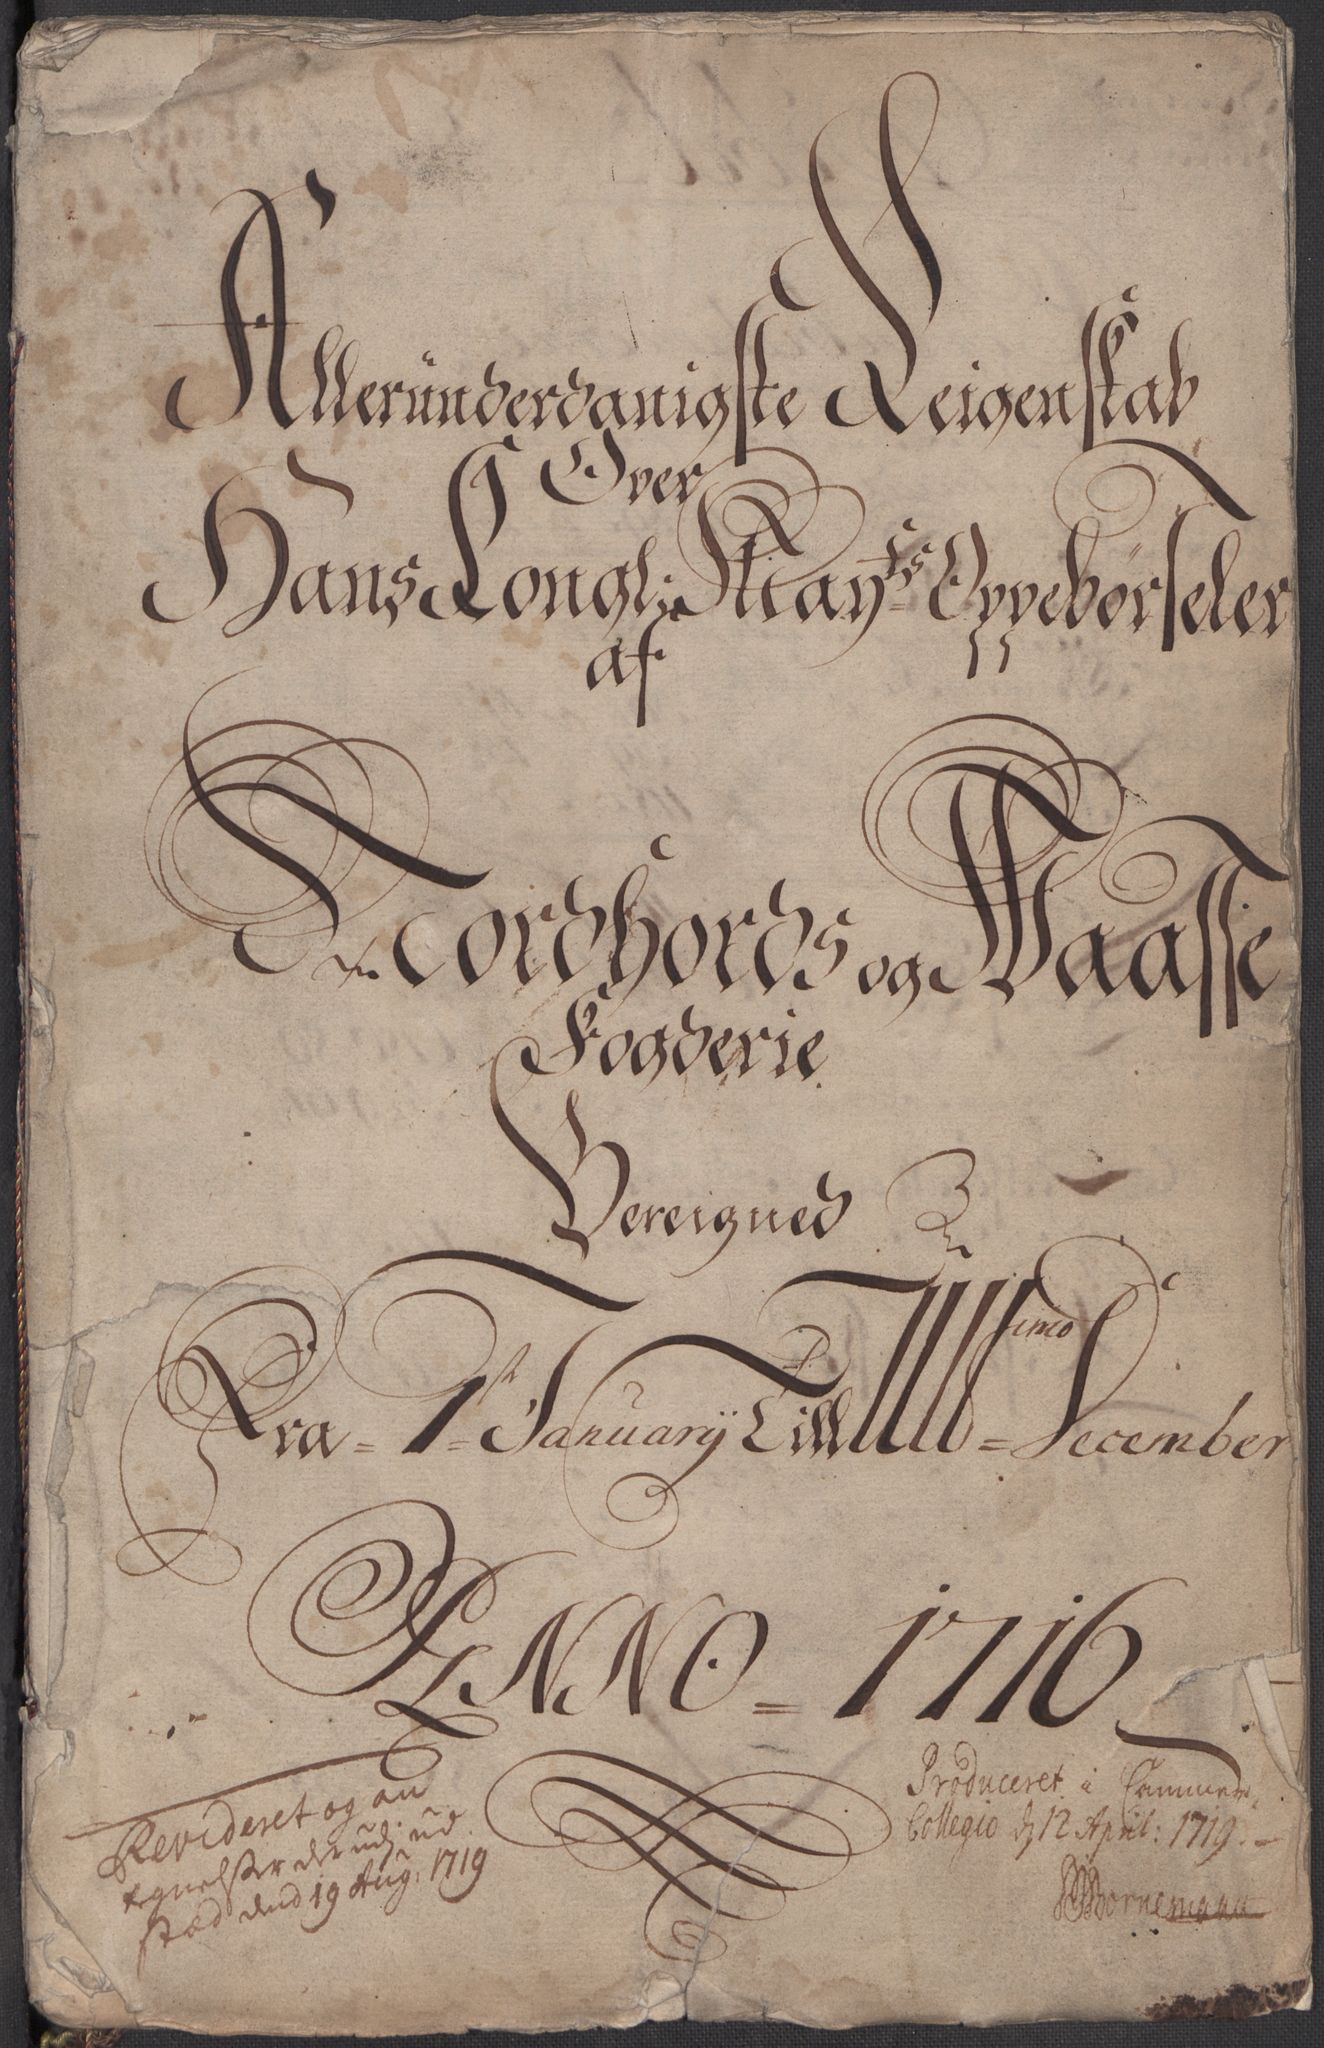 Alleründerdanigste Reigenskab
Over
Hans Kongl: Maytts Oppebörseler
af
Nordhords og Waasse
Fogderie
Bereigned
Fra = 1st = January Till Ultimo = December
ANNO = 1716
Revideret og an
tegnelser der udj ud
sted dend 19 Aug: 1719
Produceret i Cammer
Collegio d 12 April: 1719.
Bornemann